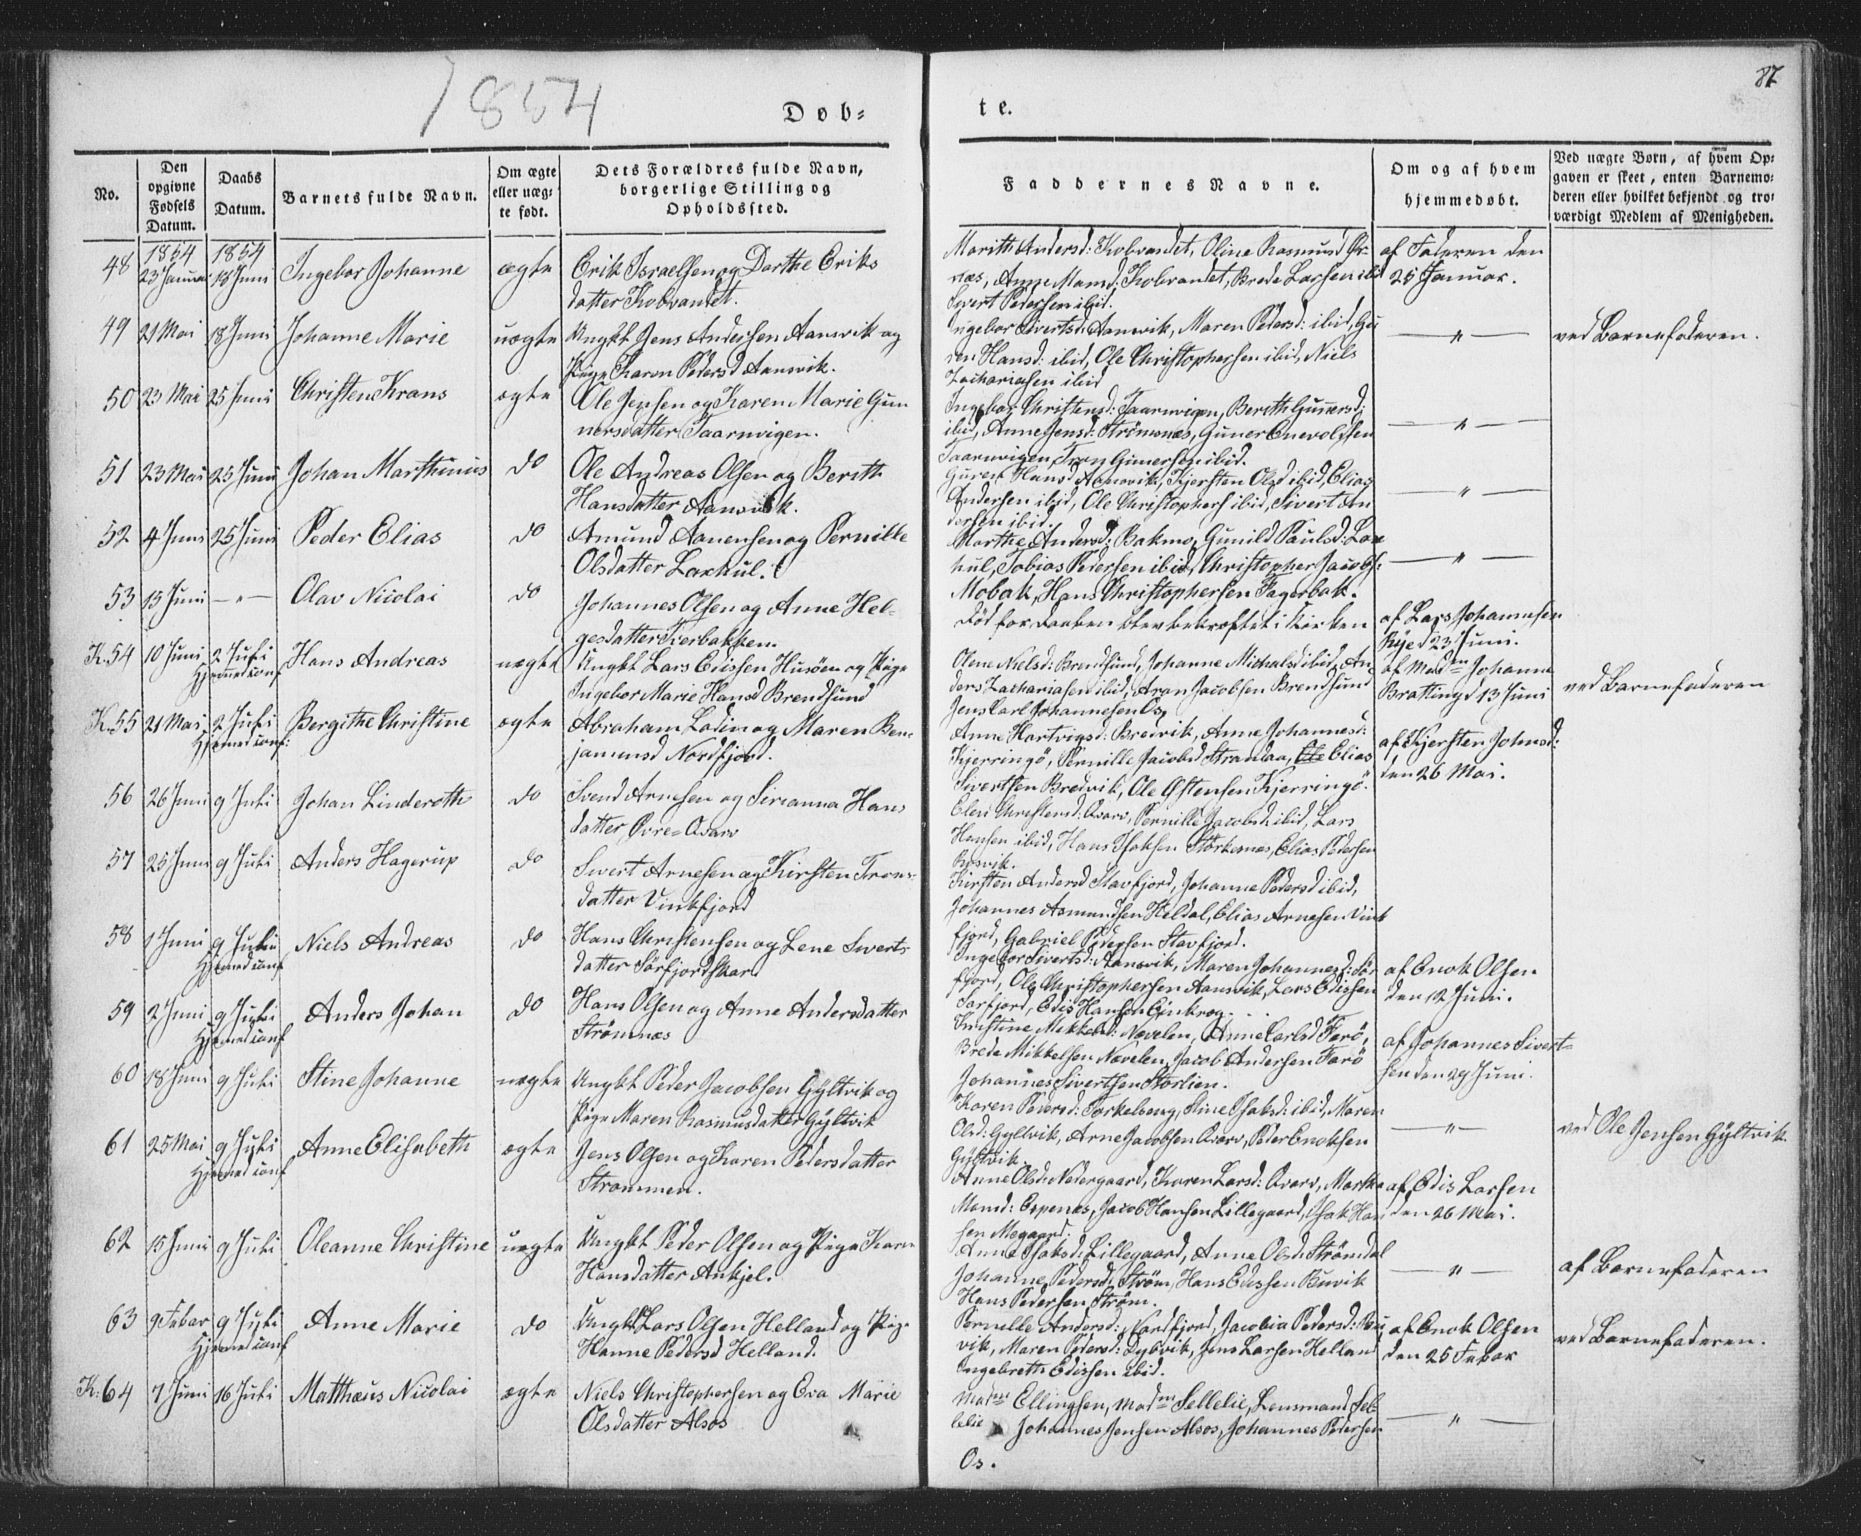 1854
87
Døb-
te.
No.
Den opgivne Fødsels Datum.
Daabs Datum.
Barnets fulde Navn.
Om ægte eller uæg-
te født.
Dets Forældres fulde Navn,
borgerlige Stilling og
Opholdssted.
Faddernes Navne.
Om og af hvem
hjemmedøbt.
Ved uægte Børn, af hvem Op-
gaven er skeet, enten Barnemo-
deren eller hvilket bekjendt og tro-
værdigt Medlem af Menigheden.
1854 1854
48 23 Januar 18 Juni Ingebor Johanne ægte Erik Israelsen og Dorthe Eriks
datter Kobvandet.
Marith Andersd: Kobvandet, Oline Rasmusd
næs, Anne Mansd: Kobvandet, Brede Larsen ibid
Sivert Pedersen ibid.
af Faderen den
25 Januar.
49 21 Mai 18 Juni Johanne Marie uægte Ungkl Jens Andersen Aansvik og
Pige Karen Pedersd Aansvik.
Ingebor Sivertsd: Aansvik, Maren Pedersd: ibid, Gu
ren Hansd: ibid, Ole Christophersen ibid, Niels
Zachariasen ibid
— " —
ved Barnefaderen.
50 23 Mai 25 Juni Christen Krans ægte Ole Jensen og Karen Marie Gun
nersdatter Taarnvigen.
Ingebor Christensd: Taarnvigen, Berith Gunersd:
ibid, Anne Jensd: Strømsnæs, Guner Enevoldsen
Taarnvigen, Tron Gunersen ibid.
— " —
51 23 Mai 25 Juni Johan Marthinus do Ole Andreas Olsen og Berith
Hansdatter Aansvik.
Guren Hansd Aansvik, Kjersten Olsd ibid, Elias
Andersen ibid, Ole Christophers ibid, Sivert An
dersen ibid.
— " —
52 4 Juni 25 Juni Peder Elias do Amund Aanensen og Pernille
Olsdatter Laxhul.
Marthe Andersd: Bakmo, Gunild Paulsd: Lax
hul, Tobias Pedersen ibid, Christopher Jacobs:
Mobak, Hans Christophersen Fagerbak.
— " —
53 15 Juni — " — Olav Nicolai do Johannes Olsen og Anne Hel-
gesdatter Tverbakken.
Død før Daaben blev bekræftet i Kirken
af Lars Johannesen
Rye d 23 Juni.
K. 54 10 Juni 2 Juli Hans Andreas uægte Ungkl Lars Edissen Husöen og Pige
Hjemmed conf
Ingebor Marie Hansd Brendsund
Olene Nielsd: Brendsund, Johanne Michalsd ibid, An
ders Zachariasen ibid, Aron Jacobsen Brendsund
Jens Carl Johannesen Os,
af Madm Johanne
Bratting d 13 Juni
ved Barnefaderen
K. 55 21 Mai 2 Juli Bergithe Christine ægte Abraham Lodin og Maren Ben-
Hjemmed conf:
jaminsd Nordfjord.
Anne Hartvigsd: Bredvik, Anne Johannesd:
Kjerringö, Pernille Jacobsd Strandaa, Elias
Sivertsen Bredvik, Ole Østensen Kjerringö.
af Kjersten Johnsd:
den 26 Mai.
56 26 Juni 9 Juli Johan Linderoth do Svend Arnesen og Sirianna Hans
datter Øvre-Qvarv
Elen Christensd: Qvarv, Pernille Jacobsd: ibid, Lars
Hansen ibid, Hans Isaksen Størkesnæs, Elias Pedersen
Røsvik.
57 25 Juni 9 Juli Anders Hagerup do Sivert Arnesen og Kirsten Trons-
datter Vinkfjord
Kirsten Andersd Stavfjord, Johanne Pedersd ibid,
Johannes Asmundsen Heldal, Elias Arnesen Vink
fjord, Gabriel Pedersen Stavfjord.
58 1 Juni 9 Juli Niels Andreas do Hans Christensen og Lene Siverts
Hjemmed conf
datter Sörfjordskar
Ingebor Sivertsd: Aansvik, Maren Johannesd: Sör
fjord, Ole Christophersen Aansvik, Lars Edissen
Sørfjord, Edis Hansen Einkrog.
af Enok Olsen
den 12 Juni.
59 2 Juni 9 Juli Anders Johan do Hans Olsen og Anne Andersdatter
Hjemmed conf
Strömsnæs
Kristine Mikkelsd: Nævelen, Anne Carlsd Farö,
Brede Mikkelsen Nævelen, Jacob Andersen Farö
Johannes Sivertsen Storlien.
af Johannes Sivert-
sen den 29 Juni.
60 18 Juni 9 Juli Stine Johanne uægte Ungkl Peder Jacobsen Gyltvik og
Pige Maren Rasmusdatter Gyltvik
Karen Pedersd: Torkelseng, Stine Isaksd: ibid, Maren
Olsd: Gyltvik, Arne Jacobsen Qvarv, Peder Enoksen
Gyltvik.
— " —
ved Ole Jensen Gyltvik
61 25 Mai 9 Juli Anne Elisabeth ægte Jens Olsen og Karen Pedersdatter
Hjemmed conf
Strømmen.
Anne Olsd: Nedergaard, Karen Larsd: Qvarv, Martha
Monsd: Espenæs, Jacob Hansen Lillegaard, Isak Han
sen Megaard.
af Edis Larsen
den 26 Mai.
62 15 Juni 9 Juli Oleanne Christine uægte Ungkl Peder Olsen og Pige Karen
Hansdatter Aukjel.
Anne Isaksd: Lillegaard, Anne Olsd: Strömdal
Johanne Pedersd: Strøm, Hans Edissen Buvik
Hans Pedersen Strøm.
— " —
af Barnefaderen
63 9 Febar 9 Juli Anne Marie do Ungkl Lars Olsen Helland og Pige
Hjemmed conf
Hanne Pedersd Helland.
Pernille Andersd: Nordfjord, Jacobia Pedersd:
vik, Maren Pedersd: Dybvik, Jens Larsen Helland
Ingebreth Edissen ibid.
af Enok Olsen
den 25 Febar
ved Barnefaderen.
K: 64 7 Juni 16 Juli Matthæus Nicolai ægte Niels Christophersen og Eva Marie
Olsdatter Alsos
Madm Ellingsen, Madm Sellelie, Lensmand Sel-
lelie Johannes Jensen Alsos, Johannes Pedersen
Os.
— " —